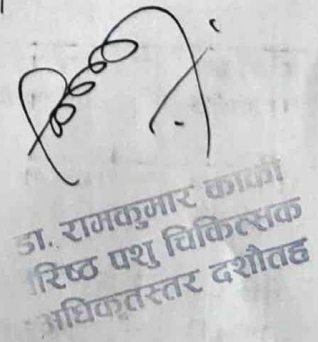 डा. रामकुमार कार्की
रिष्ठ पशु चिकित्सक
अधिकृतस्तर दशौतह